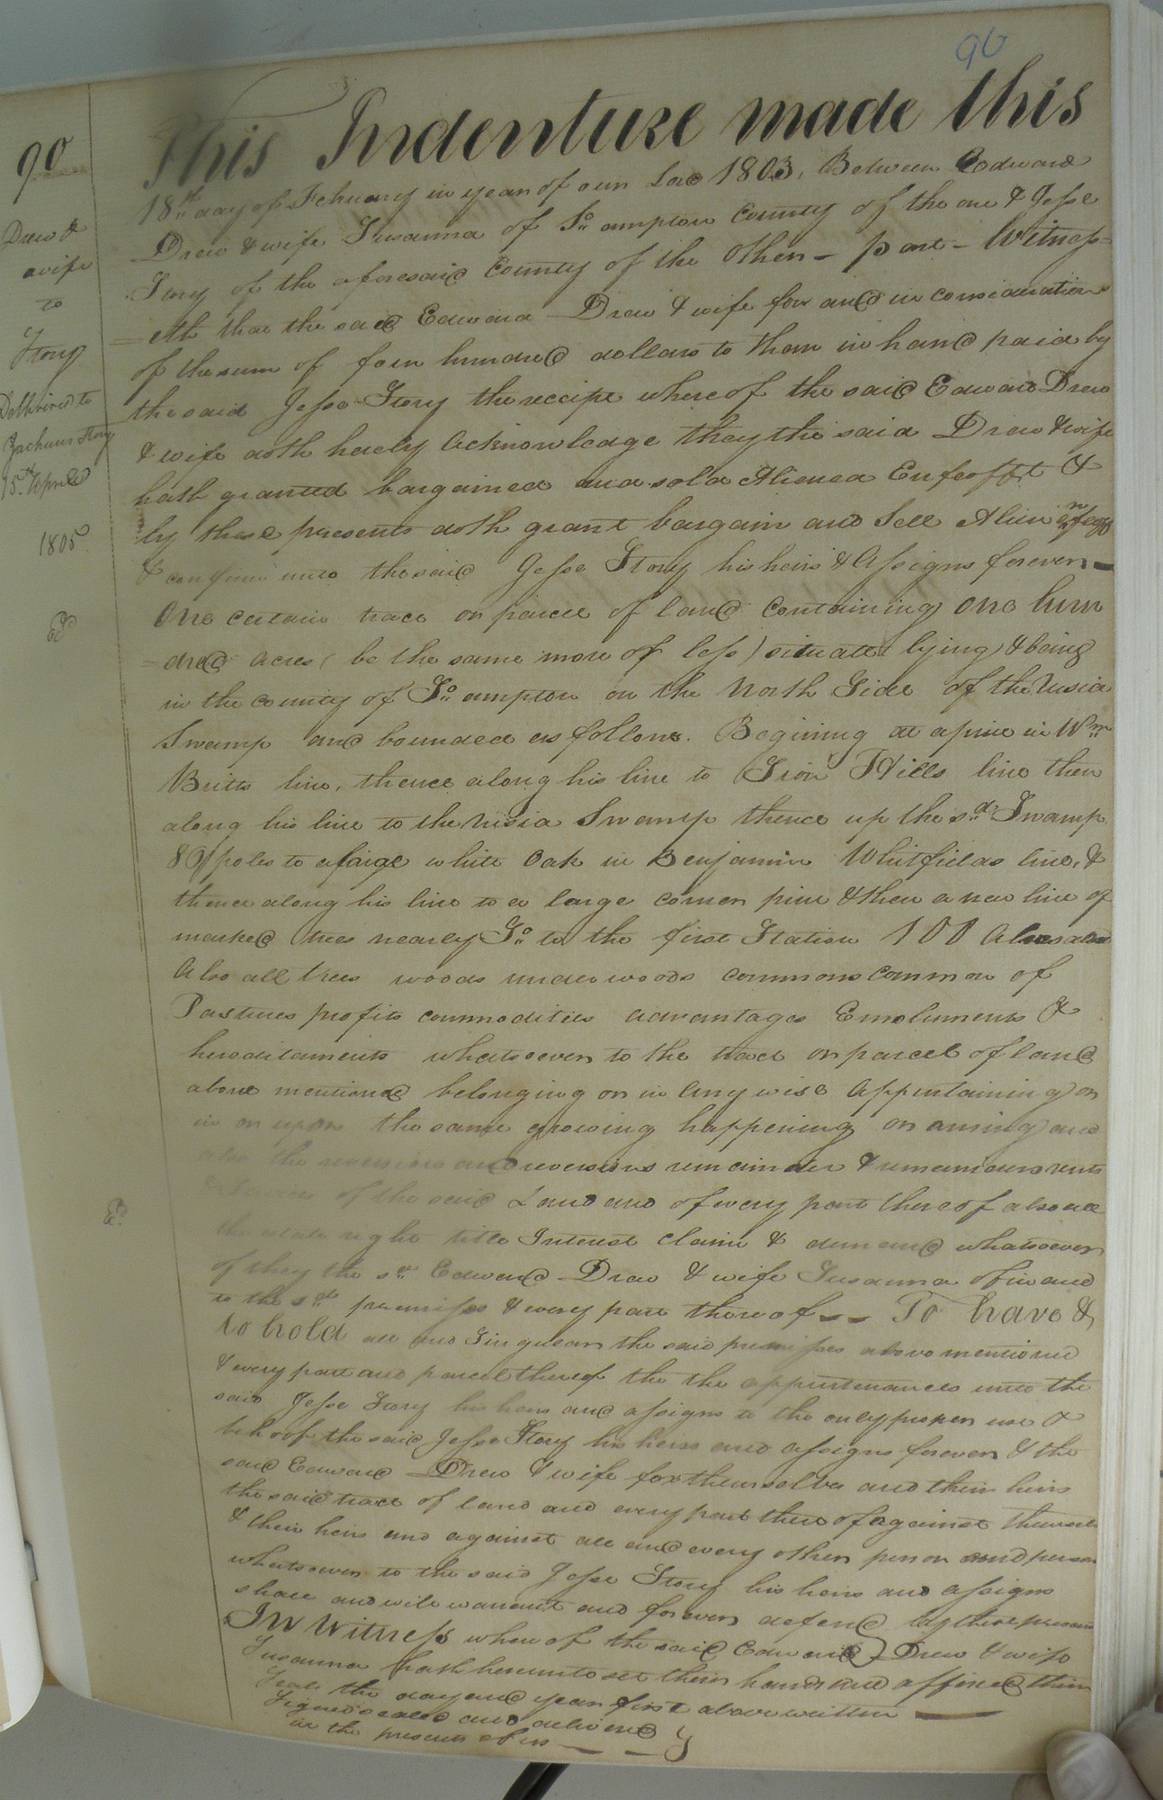 90
90
Drew &
wife
to
Story
Delivered to
Zacheus Story
15th April
1805
Ed
Ed
This Indenture made this
18th day of Februery in year of our Lord 1803, Between Edward
Drew & wife Susanna of So ampton County of the one & Jesse
Story of the aforesaid County of the Other - part - Witness=
=eth that the said Edward Drew & wife for and in consideration
of the sum of four hundred dollars to them in hand paid by
the said Jesse Story the receipt whereof the said Edward Drew
& wife doth herely Acknowledge they the said Drew & wife
hath granted bargained and sold Aliened Enfeofft &
by these presents doth grant bargain and Sell Alien enfeoff
& confirm unto the said Jesse Story his heirs & Assigns forever -
One certain tract or parcel of land Containing one hun
=dred acres ( be the same more of less ) situate lying & being
in the county of So ampton on the North Side of the
Swamp and bounded as follows. Begining at a pine in Wm
Britts line, thence along his line to Hills line then
along his line to the Swamp thence up the sd Swamp
80 poles to a large white Oak in Benjamin Whitfields line, &
thence along his line to a large corner pine & then a new line of
marked trees nearly So to the first Station 100
Also all trees woods underwoods commons common of
Pastures profits commodities advantages Emoluments &
hereditaments whatsoever to the tract or parcel of land
above mentioned belonging or in any wise Appertaining or
in or upon the same growing happening or arising and
also the reversion and reversions remainder & remainders rents
of the said Land and of every part thereof also all
the estate right title Interest Claim & demand whatsoever
of they the sd Edward Drew & wife Susanna of in and
to the sd premisses & every part thereof -- To have &
to hold all and Singular the said premisses above mentioned
& every part and parcel thereof the the appurtenances unto the
said Jesse Story his heirs and assigns to the only proper use &
behoof the said Jesse Story his heirs and assigns forever & the
said Edward Drew & wife for themselves and their heirs
the said tract of land and every part thereof against
& their heirs and against all and every other person and person
whatsoever to the said Jesse Story his heirs and assigns
shall and will warrant and forever defend by these presents
In Witness whereof the said Edward Drew & wife
Susanna hath hereunto set their hands and affixed their
Seals the day and year first above written
Signd sealed and delivered
in the presents of us